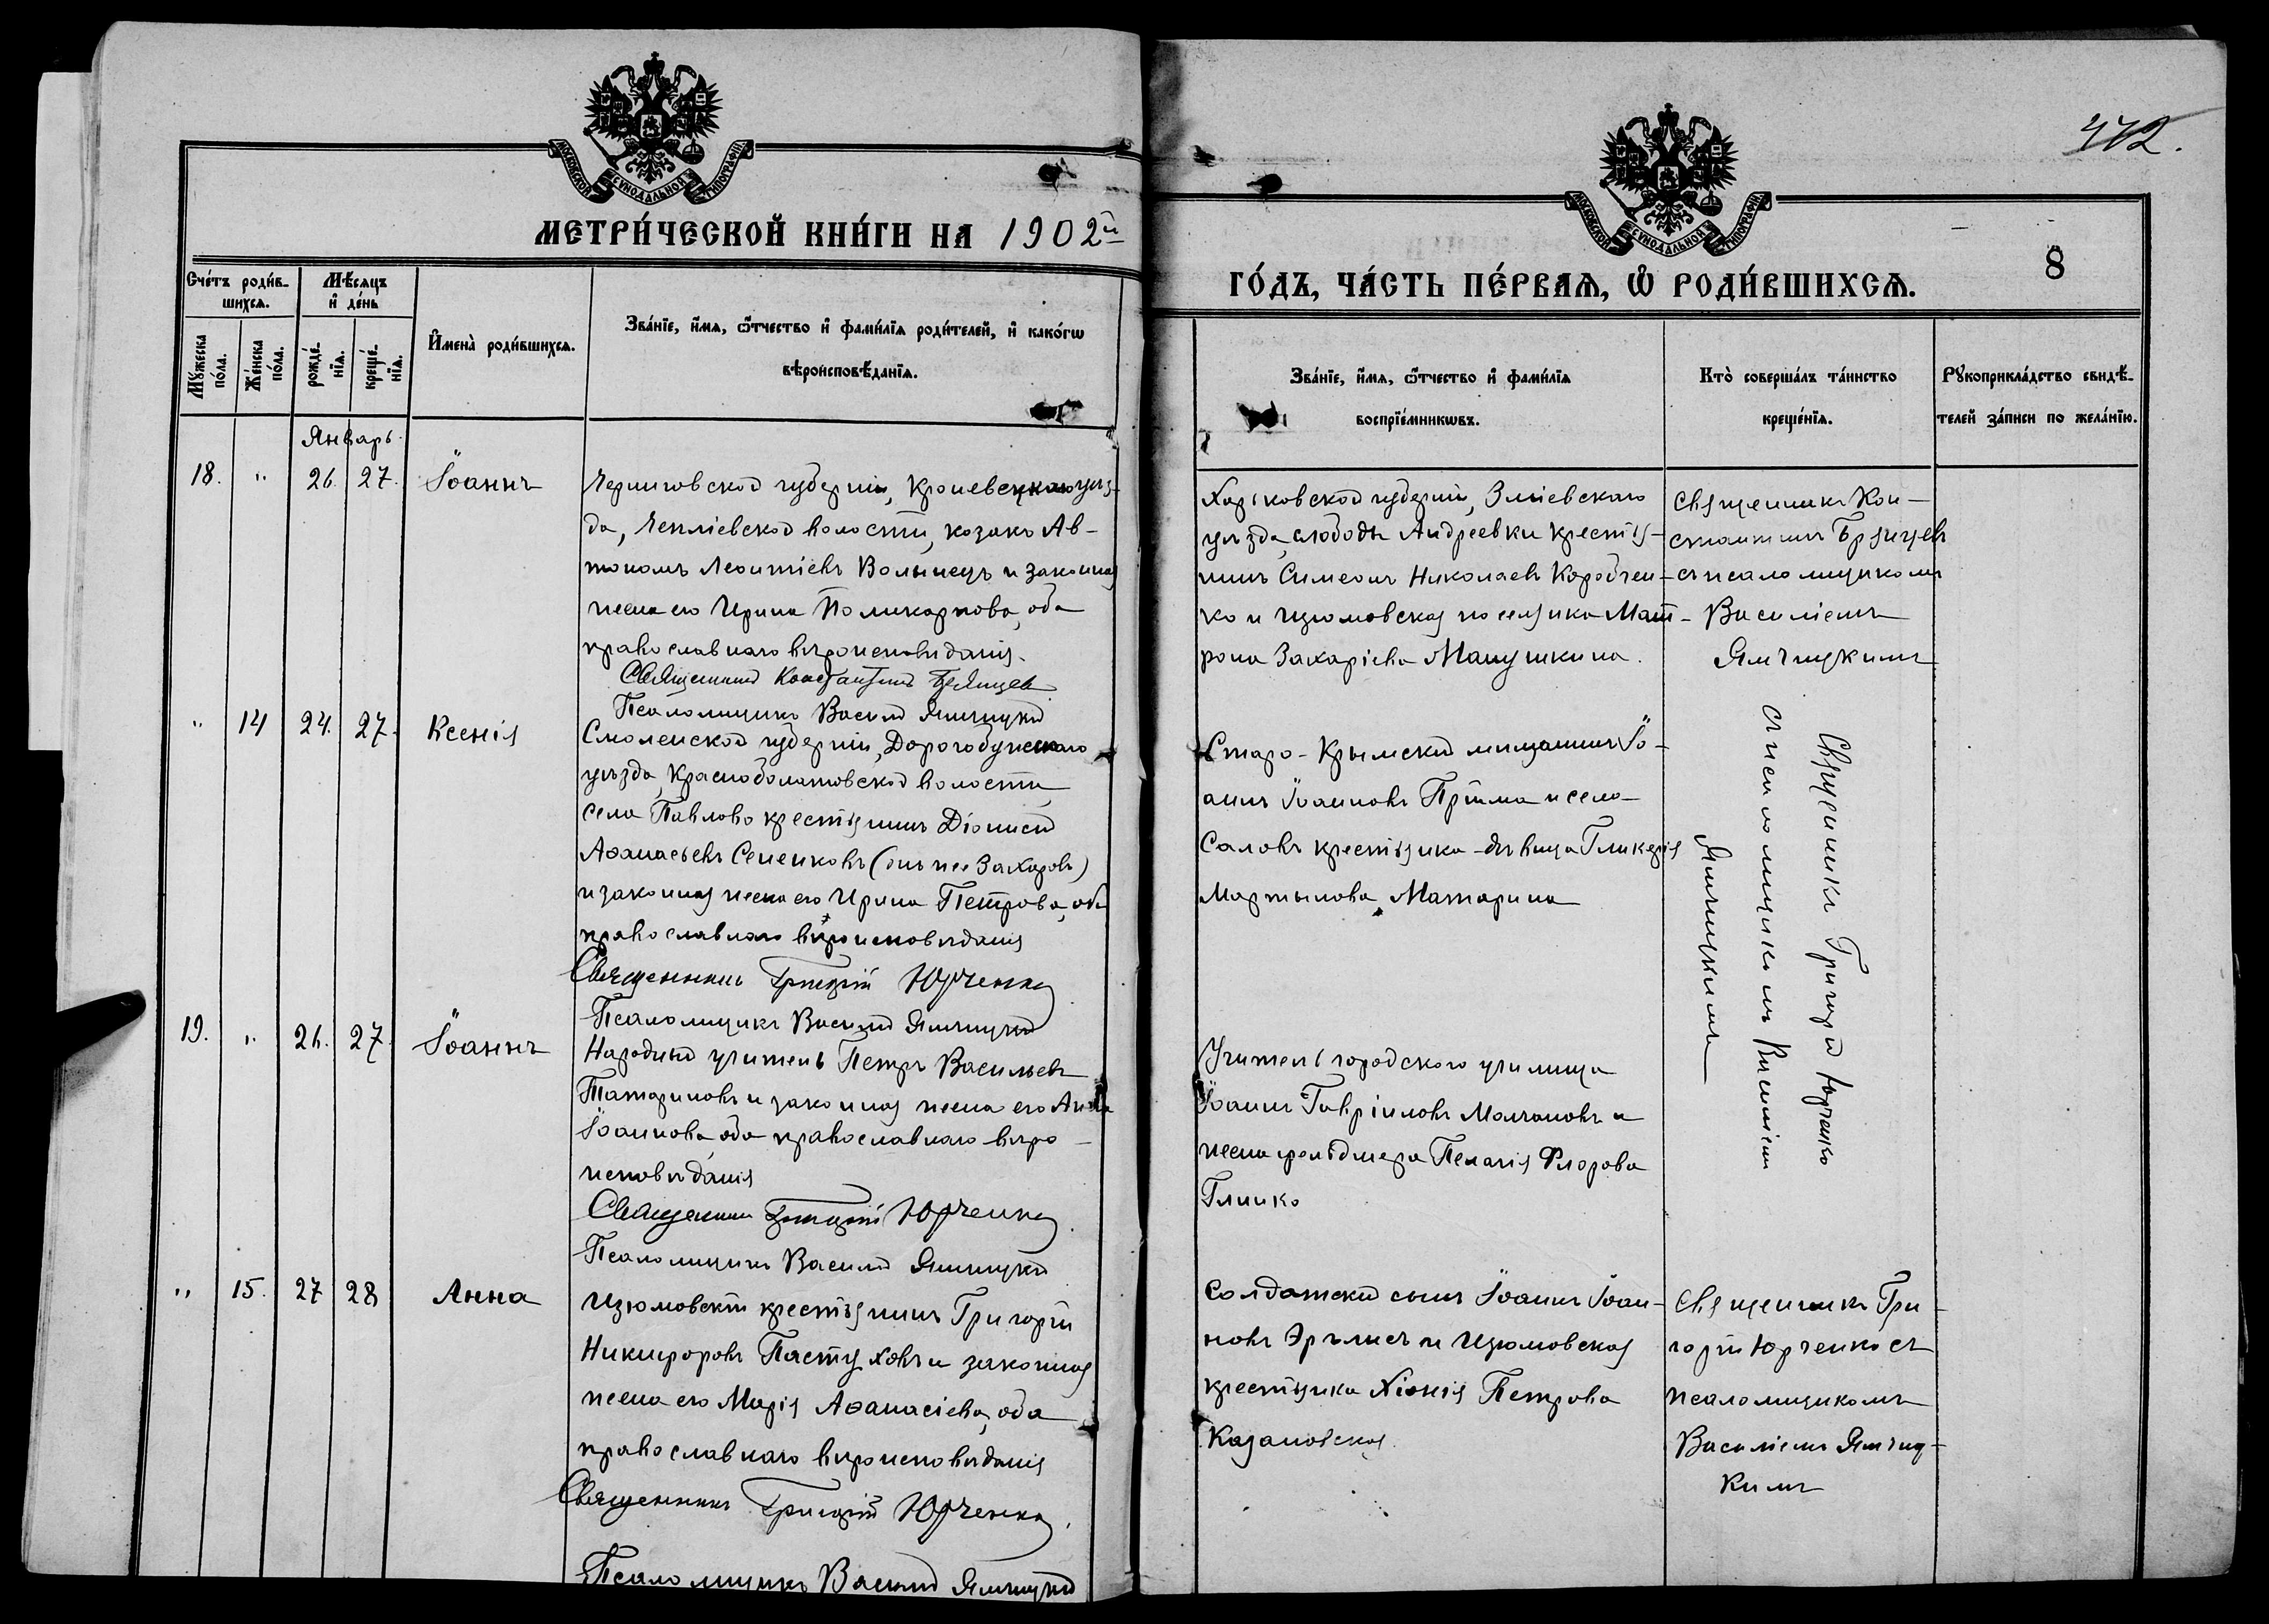 МОСКОВСКОЙ СѴНОДАЛЬНОЙ ТИПОГРАФІИ
МЕТРИ́ЧЕСКОЙ КНИ́ГИ НА 1902й
Сче́тъ роди́в-
шихсѧ.
Мѣ́сѧцъ
и҆ де́нь
Мꙋ́жеска
по́ла.
Же́нска
по́ла.
рожде́-
нїѧ.
креще́-
нїѧ.
И҆мена̀ роди́вшихсѧ.
Зва́нїе, и҆́мѧ, ѻ҆́тчество и҆ фами́лїѧ роди́телей, и҆ како́гѡ
вѣроисповѣ́данїѧ.
Январь.
18. " 26. 27. Іоаннъ
Черниговской губерніи, Кролевецкаго уѣз-
да, волости, козакъ Ав-
тономъ Леонтіевъ Волынецъ и законная
жена его Ирина Поликарпова, оба
православнаго вѣроисповѣданія.
Священникъ Константинъ
Псаломщикъ Василій Ямчицкій
" 14 24. 27. Ксенія
Смоленской губерніи, Дорогобужскаго
уѣзда, Красноболотовской волости,
села Павлово крестьянинъ Діонисій
Аѳанасьевъ Сененковъ (онъ же Захаровъ)
и законная жена его Ирина Петрова, оба
православнаго вѣроисповѣданія
Священникъ Григорій Юрченко
Псаломщикъ Василій Ямчицкій
19. " 26. 27. Іоаннъ
Народный учитель Петръ Васильевъ
Татариновъ и законная жена его Анна
Іоаннова, оба православнаго вѣро-
исповѣданія
Священникъ Григорій Юрченко
Псаломщикъ Василій Ямчицкій
" 15. 27 28 Анна
Изюмовскій крестьянинъ Григорій
Никифоровъ Пастуховъ и законная
жена его Марія Аѳанасіева, оба
православнаго вѣроисповѣданія
Священникъ Григорій Юрченко
Псаломщикъ Василій Ямчицкій
МОСКОВСКОЙ СѴНОДАЛЬНОЙ ТИПОГРАФІИ
8
ГО́ДЪ, ЧА́СТЬ ПЕ́РВАѦ, Ѡ҆ РОДИ́ВШИХСѦ.
Зва́нїе, и҆́мѧ, ѻ҆́тчество и҆ фами́лїѧ
воспрїе́мникѡвъ.
Кто̀ соверша́лъ та́инство
креще́нїѧ.
Рꙋкоприкла́дство свидѣ́-
телей за́писи по жела́нїю.
Харьковской губерніи, Зміевскаго
уѣзда, слободы Андреевки крестья-
нинъ Симеонъ Николаевъ Коробчен-
ко и Изюмовская поселянка Мат-
рона Захаріева Манушкина.
Священникъ Кон-
стантинъ
съ псаломщикомъ
Василіемъ
Ямчицкимъ
Старо-Крымскій мѣщанинъ Іо-
аннъ Іоанновъ Прійма и села
Саловъ крестьянка-дѣвица Гликерія
Мартынова Матарина
Священникъ Григорій Юрченко
съ псаломщикомъ Василіемъ
Ямчицкимъ
Учитель городского училища
Іоаннъ Гавріиловъ Молчановъ и
жена фельдшера Пелагія Флорова
Глинко
Солдатскій сынъ Іоаннъ Іоан-
новъ и Изюмовская
крестьянка Хіонія Петрова
Казановская.
Священникъ Гри-
горій Юрченко съ
псаломщикомъ
Василіемъ Ямчиц-
кимъ